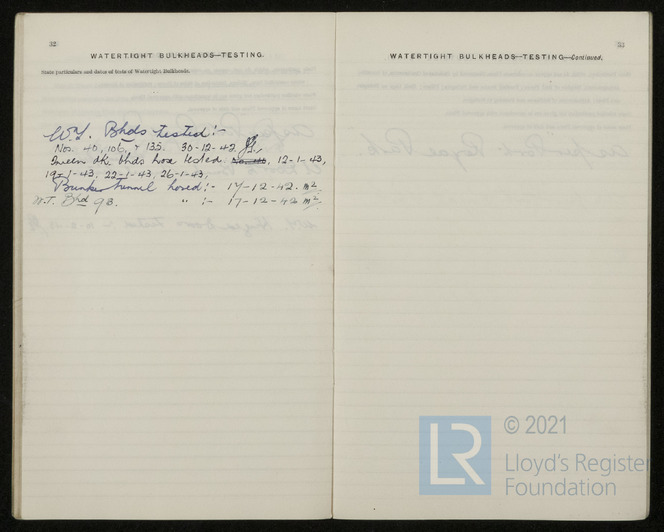 32
WATERTIGHT BULKHEADS—TESTING.
State particulars and dates of tests of Watertight Bulkheads.
W.T. Bhds tested :-
Nos. 40, 106, & 135. 30-12-42.
Tween dk bhds hose tested. 12-1-43,
19-1-43, 22-1-43, 26-1-43,
Bunker tunnel hosed :- 17-12-42.
W.T. Bhd 93. " :- 17-12-42
33
WATERTIGHT BULKHEADS—TESTING—Continued.
LR
© 2021
Lloyd's Register
Foundation